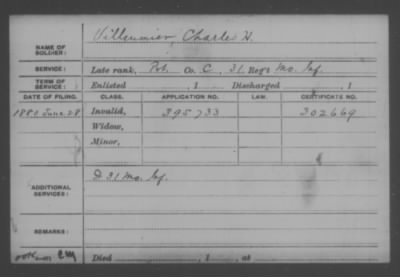 NAME OF SOLDIER: Villeumier, Charles H.
SERVICE: Late rank, Pvt. Co. C, 31 Reg't Mo. Inf.
TERM OF SERVICE: Enlisted , 1 Discharged , 1
DATE OF FILING. CLASS. APPLICATION NO. LAW. CERTIFICATE NO.
1880 June 28 Invalid, 395733 302669
Widow,
Minor,
ADDITIONAL SERVICES: D 31 Mo. Inf.
REMARKS:
Died , 1 , at